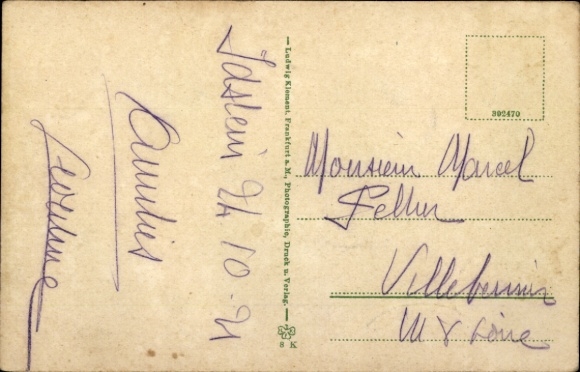 Idstein 24 10 - 21
Amitiés
— Ludwig Klement, Frankfurt a. M., Photographie, Druck u. Verlag. —
8 K
392470
Monsieur Marcel
Villebernier
M & Loire